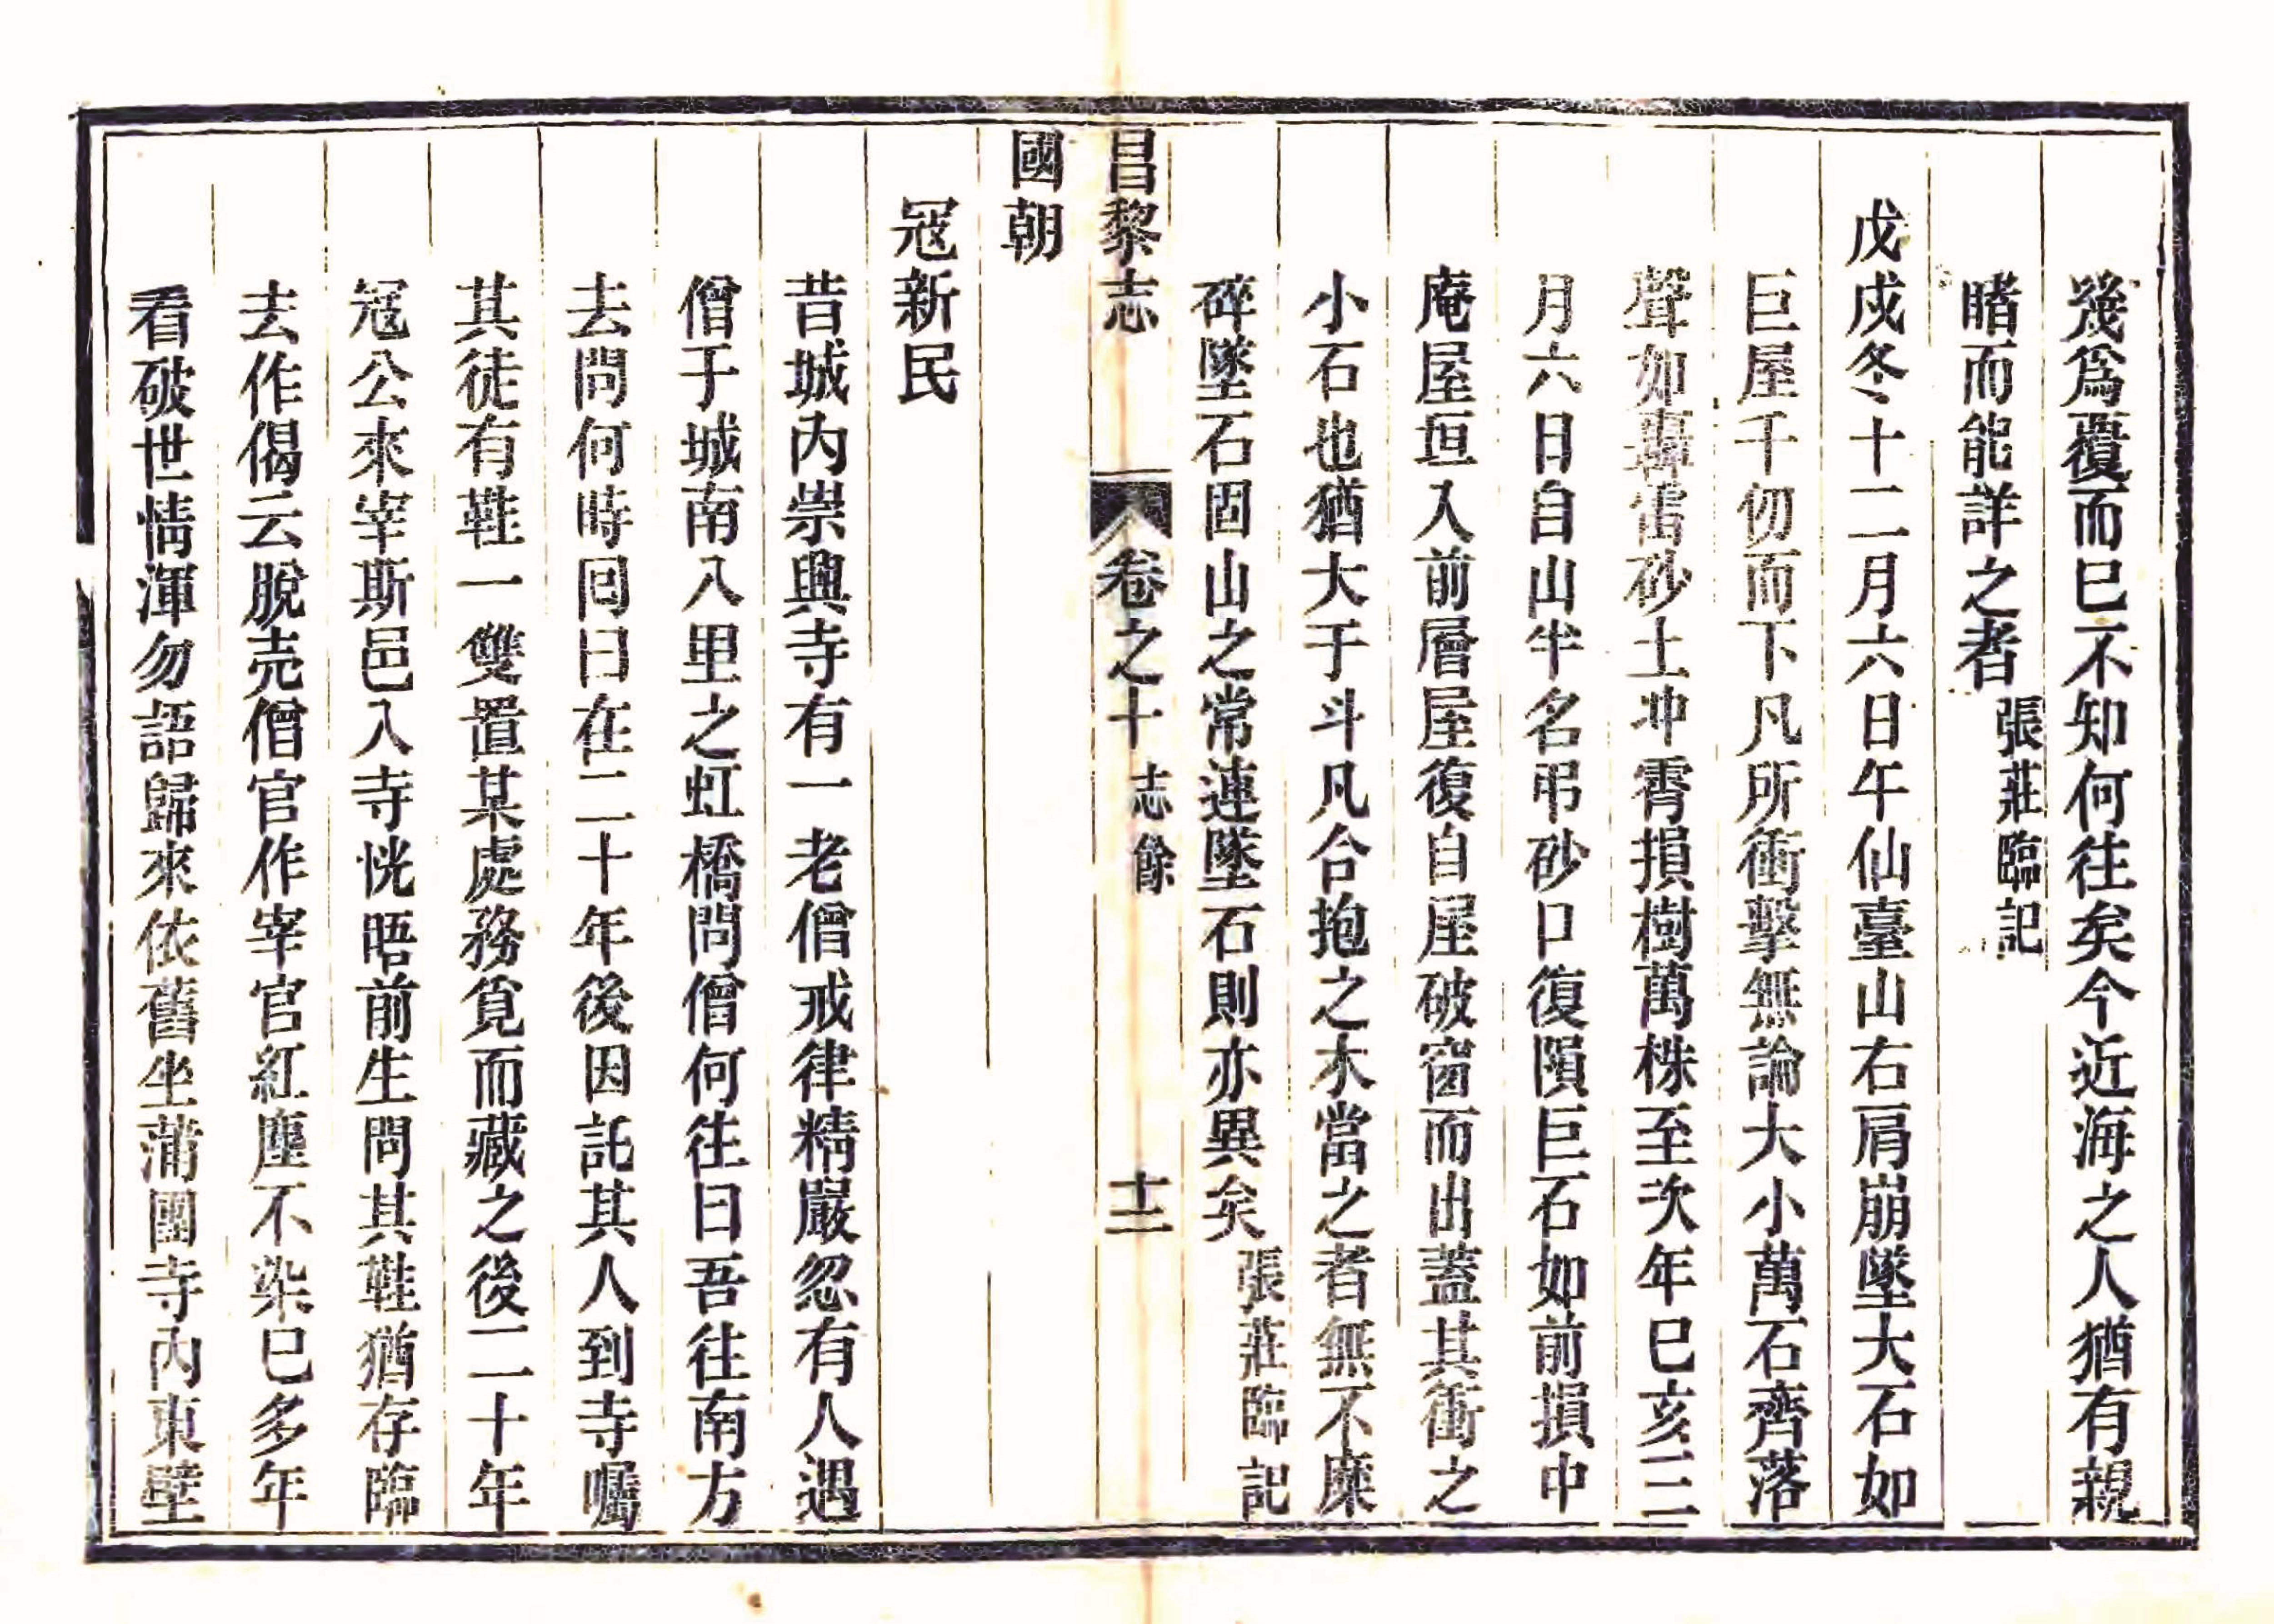 幾爲覆而巳不知何往矣今近海之人猶有親
睹而能詳之者張莊臨記
戊戍冬十二月六日午仙臺山右肩崩墜大石如
巨屋千仞而下凡所衝擊無論大小萬石齊落
聲如轟雷砂土冲霄損樹萬株至次年巳亥三
月六日自山半名弔砂口復隕巨石如前損中
庵屋垣入前層屋復自屋破窗而出蓋其衝之
小石也猶大于斗凡合抱之木當之者無不糜
碎墜石固山之常連墜石則亦異矣張莊臨記
昌黎志 卷之十 志餘 十二
國朝
冦新民
昔城內崇興寺有一老僧戒律精嚴忽有人遇
僧于城南八里之虹橋問僧何往曰吾往南方
去問何時囘曰在二十年後因託其人到寺囑
其徒有鞋一雙置某處務覓而藏之後二十年
冦公來宰斯邑入寺恍晤前生問其鞋猶存臨
去作偈云脫売僧官作宰官紅塵不染巳多年
看破世情渾勿語歸來依舊坐蒲團寺內東壁